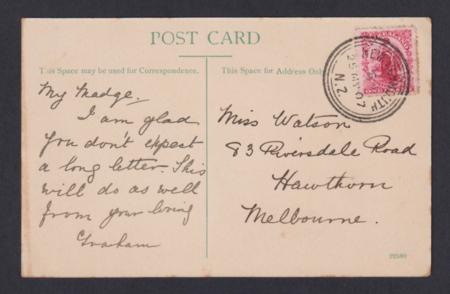 POST CARD
This Space may be used for Correspondence.
My Madge,
I am glad
you don't expect
a long letter. This
will do as well
from your loving
Graham
This Space for Address Only
Miss Watson
83 Riversdale Road
Hawthorn
Melbourne.
N Z